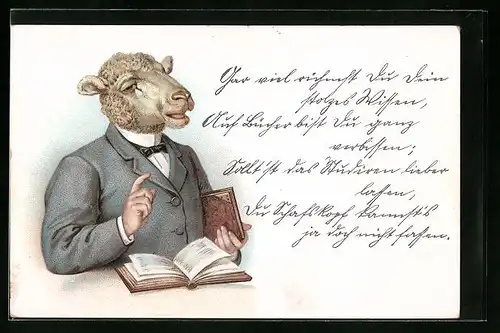 Gar viel rühmst Du Dein
stolzes Wissen,
Auf Bücher bist Du ganz
verbissen;
Sollt'st das Studiren lieber
lassen,
Du Schafskopf kannst's
ja doch nicht fassen.